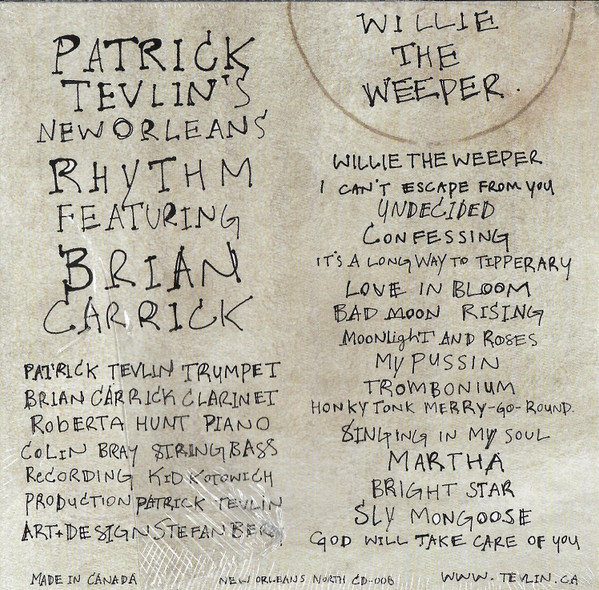 PATRICK
TEVLIN'S
NEW ORLEANS
RHYTHM
FEATURING
BRIAN
CARRICK
PATRICK TEVLIN TRUMPET
BRIAN CARRICK CLARINET
ROBERTA HUNT PIANO
COLIN BRAY STRING BASS
RECORDING KID KOTOWICH
PRODUCTION PATRICK TEVLIN
ART+DESIGN STEFAN BERG.
WILLIE
THE
WEEPER.
WILLIE THE WEEPER
I CAN'T ESCAPE FROM YOU
UNDECIDED
CONFESSING
IT'S A LONG WAY TO TIPPERARY
LOVE IN BLOOM
BAD MOON RISING
MOONLIGHT AND ROSES
MY PUSSIN
TROMBONIUM
HONKY TONK MERRY-GO-ROUND.
SINGING IN MY SOUL
MARTHA
BRIGHT STAR
SLY MONGOOSE
GOD WILL TAKE CARE OF YOU
MADE IN CANADA
NEW ORLEANS NORTH CD-006
WWW.TEVLIN.CA